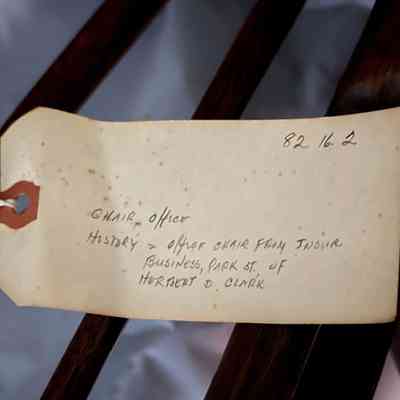 82 16 2
CHAIR, OFFICE
HISTORY = OFFICE CHAIR FROM INSUR
BUSINESS, PARK ST. OF
HERBERT D. CLARK